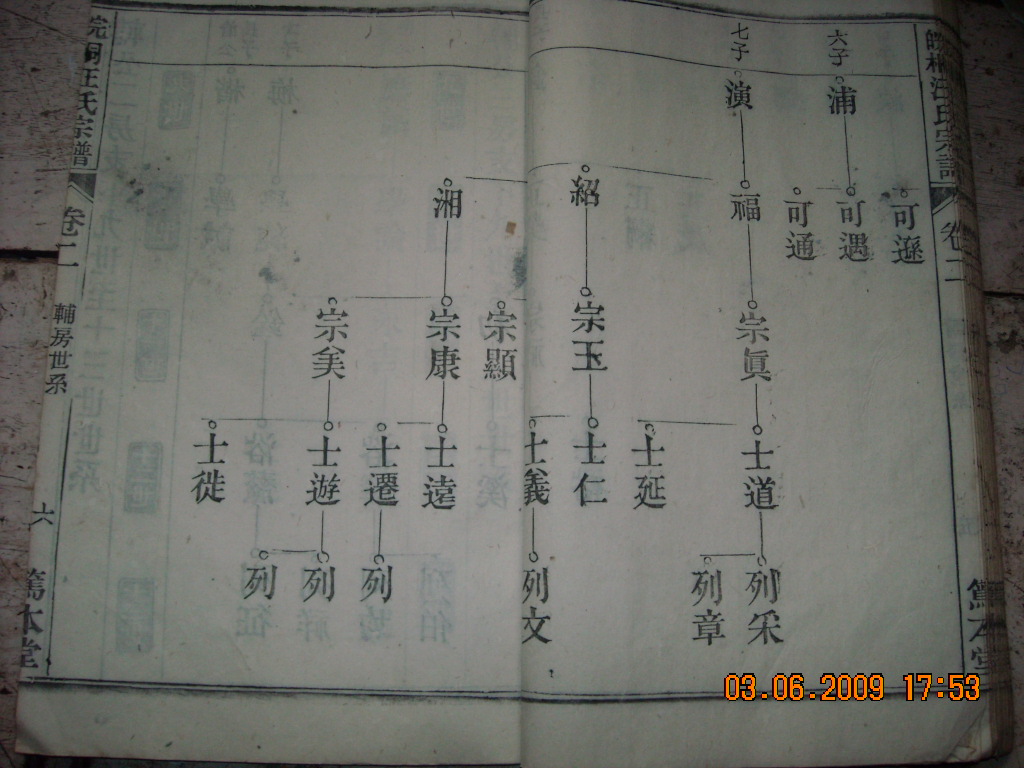 汪氏宗譜
卷二
六子
浦
可遜
可遇
可通
七子
演
福
宗眞
士道
士延
列采
列章
紹
宗玉
宗顯
士仁
士義
列文
湘
宗康
宗美
士遠
士遷
士遊
士徙
列
列
列
汪氏宗譜
卷二
輔房世系
六
篤本堂
篤本堂
03.06.2009 17:53